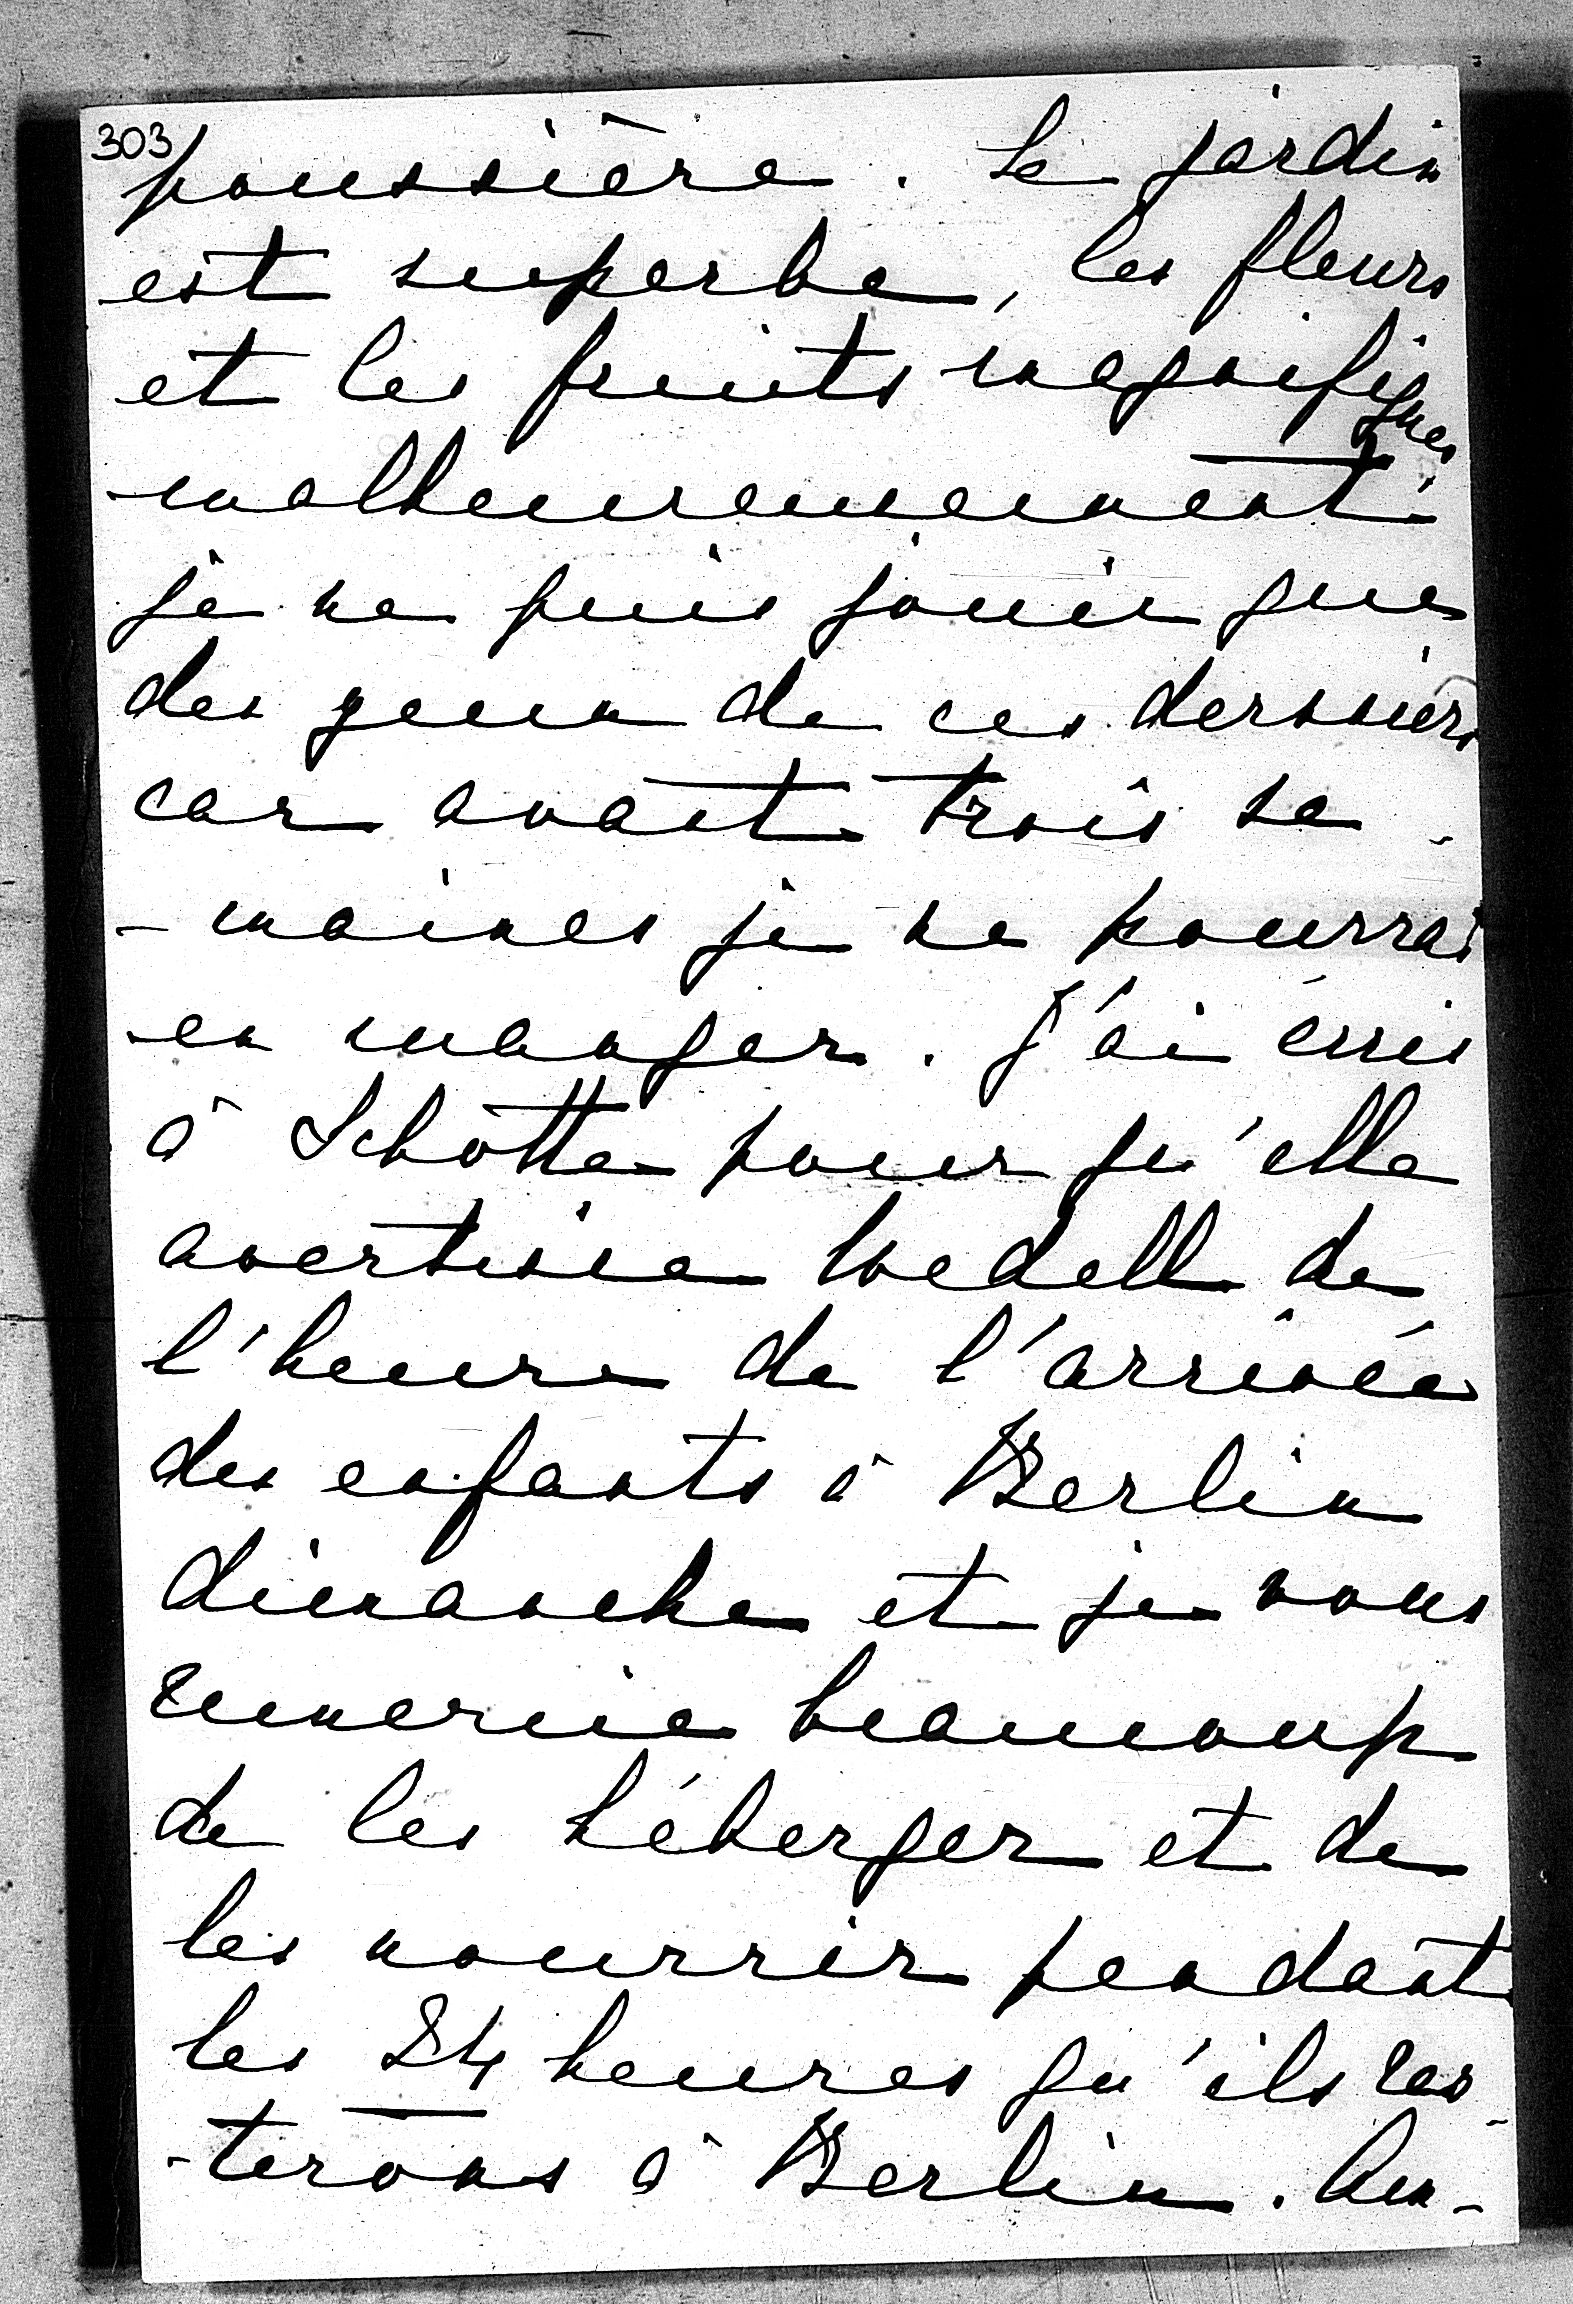 303
poussière. Le jardin
est superbe, les fleurs
et les fruits magnifiques
malheureusement
je ne puis jouir que
des yeux de ces derniers
car avant trois se-
-maines je ne pourrai
en manger. J'ai écris
à Schötte pour qu'elle
avertisse Wedell de
l'heure de l'arrivée
des enfants à Berlin
dimanche et je vous
remercie beaucoup
de les héberger et de
les nourrir pendant
les 24 heures qu'ils res-
-terons à Berlin.